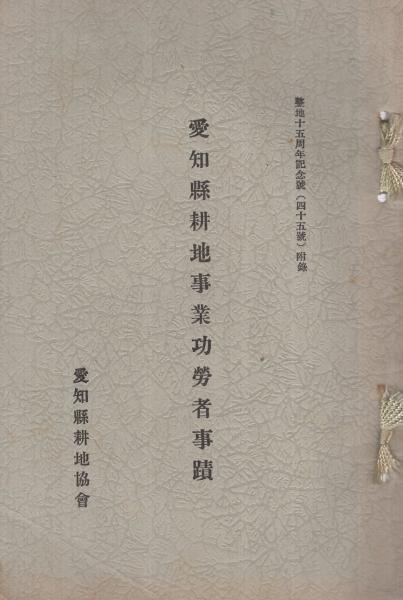 整地十五周年記念號(四十五號)附錄
愛知縣耕地事業功勞者事蹟
愛知縣耕地協會